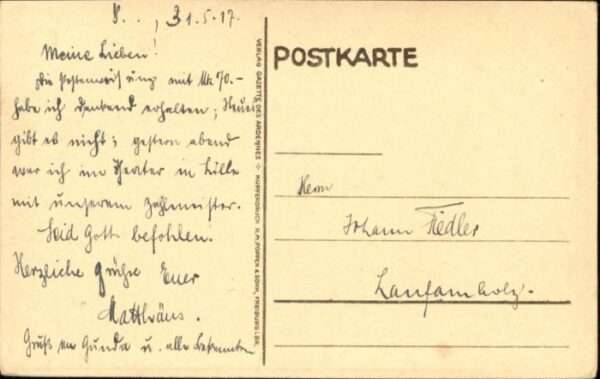 31.5.17.
Meine Lieben!
Die Postanweisung mit Mk 70.-
habe ich dankend erhalten; Neues
gibt es nicht; gestern abend
war ich im Theater in Lille
mit unserem Zahlmeister.
Seid Gott befohlen.
Herzliche Grüße Euer
Matthäus.
Gruß an Gunda u. alle Bekannten
VERLAG GAZETTE DES ARDENNES ÷ KUPFERDRUCK H.M. POPPEN & SOHN, FREIBURG I.BR.
POSTKARTE
Herrn
Johann Fiedler
Laufamholz.